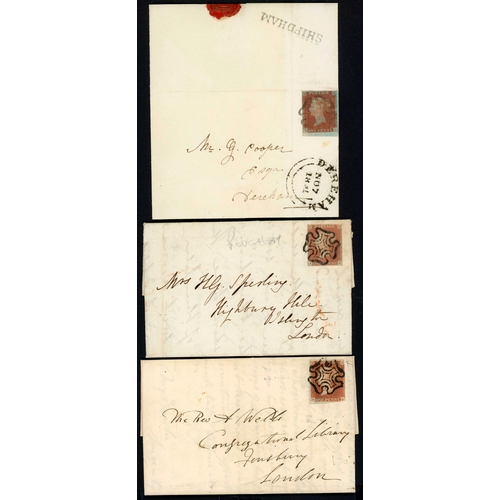 SHIPDHAM
Mr. G. Cooper
Esqr.
Dereham
DEREHAM
NO 7
Mrs H.G. Sperling
Highbury Hill
Islington
London
The Rev A Wells
Congregational Library
Finsbury
London